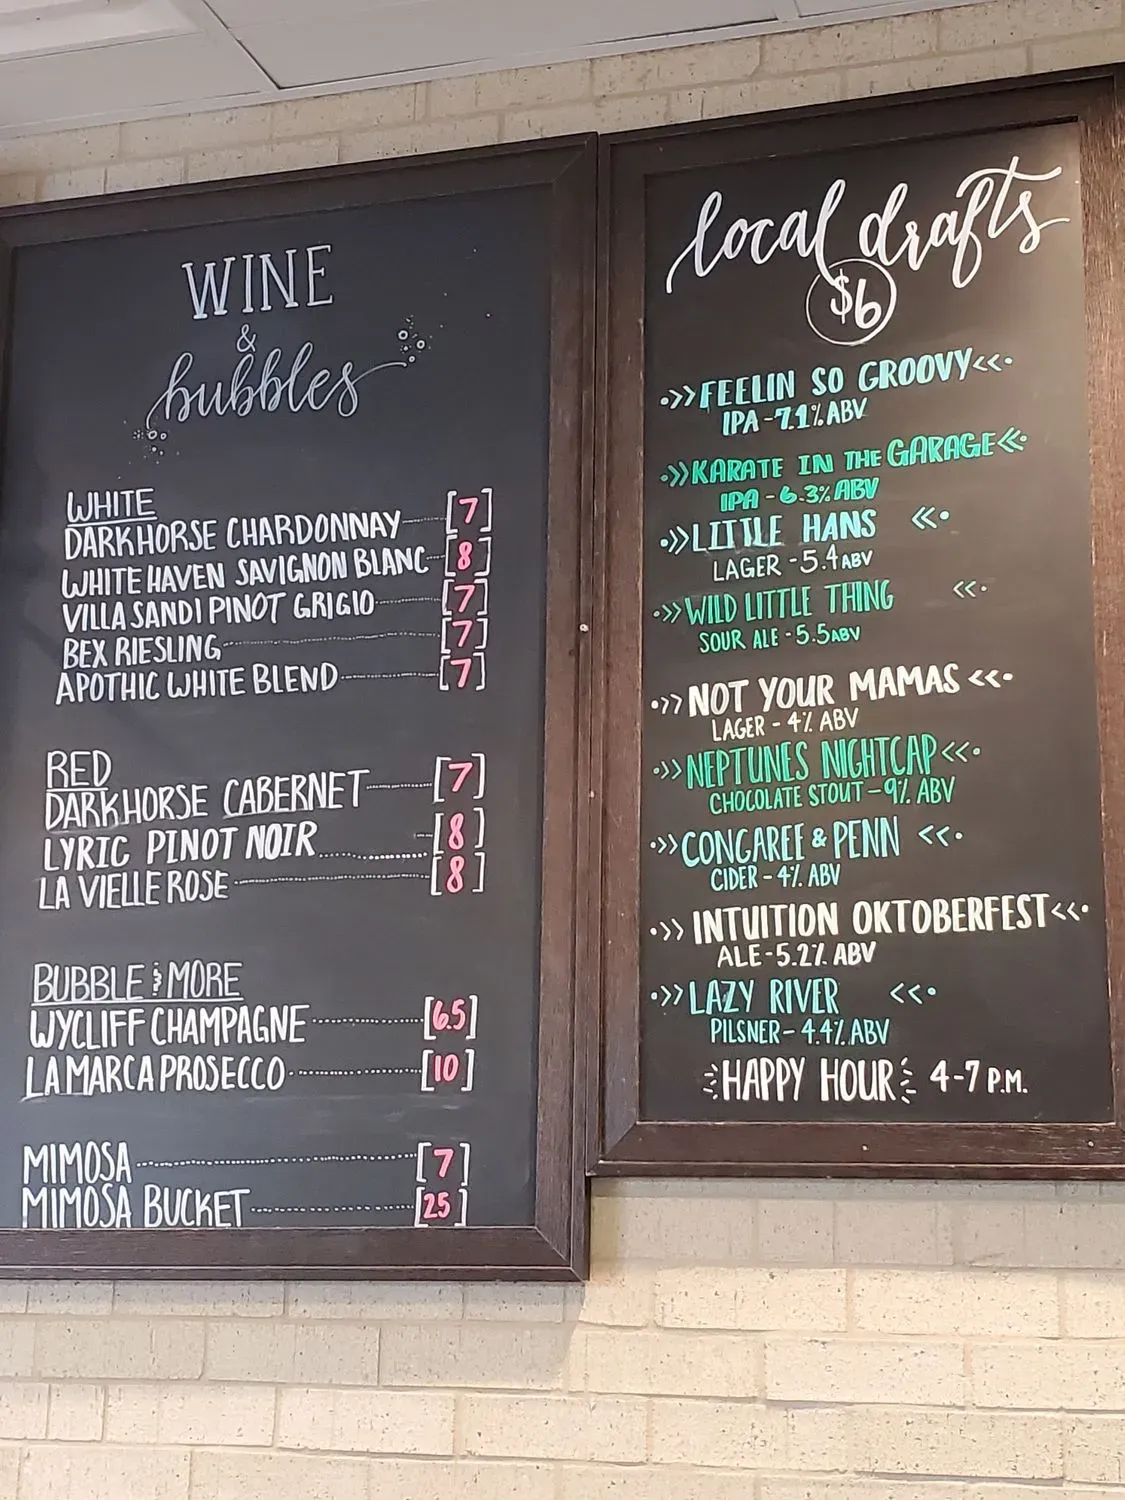 WINE
&
bubbles
WHITE
DARKHORSE CHARDONNAY [7]
WHITE HAVEN SAVIGNON BLANC [8]
VILLA SANDI PINOT GRIGIO [7]
BEX RIESLING [7]
APOTHIC WHITE BLEND [7]
RED
DARKHORSE CABERNET [7]
LYRIC PINOT NOIR [8]
LA VIELLE ROSE [8]
BUBBLE & MORE
WYCLIFF CHAMPAGNE [6.5]
LA MARCA PROSECCO [10]
MIMOSA [7]
MIMOSA BUCKET [25]
local drafts
$6
FEELIN SO GROOVY
IPA - 7.1% ABV
KARATE IN THE GARAGE
IPA - 6.3% ABV
LITTLE HANS
LAGER - 5.4 ABV
WILD LITTLE THING
SOUR ALE - 5.5 ABV
NOT YOUR MAMAS
LAGER - 4% ABV
NEPTUNES NIGHTCAP
CHOCOLATE STOUT - 9% ABV
CONGAREE & PENN
CIDER - 4% ABV
INTUITION OKTOBERFEST
ALE - 5.2% ABV
LAZY RIVER
PILSNER - 4.4% ABV
HAPPY HOUR 4-7 P.M.